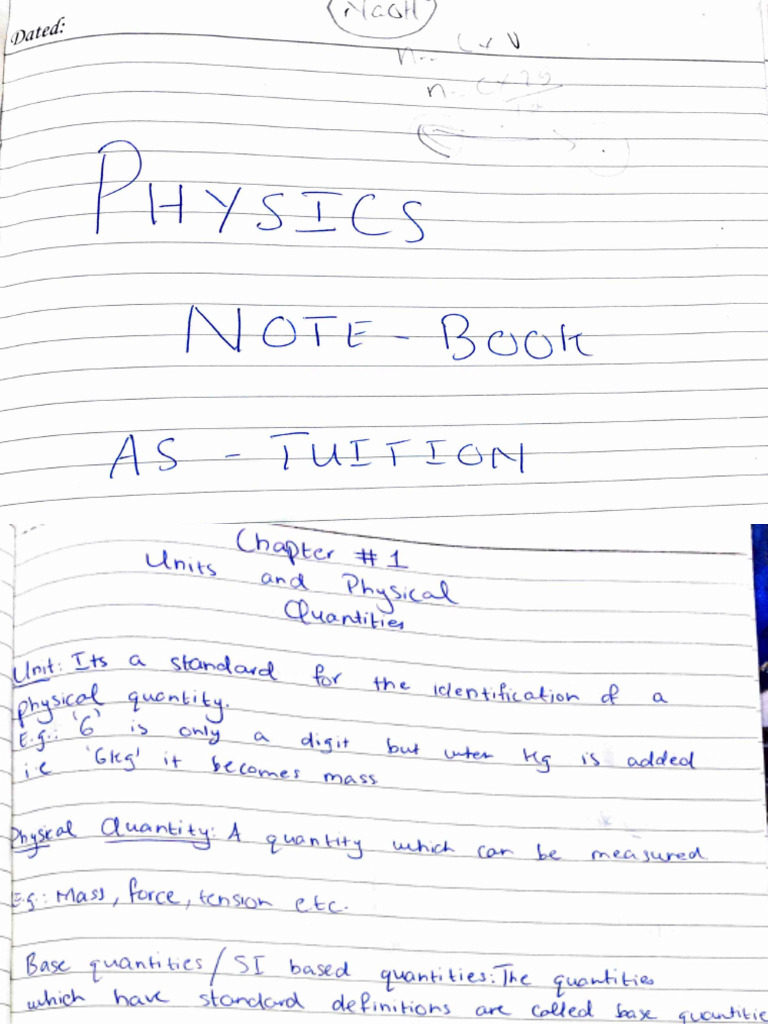 NaOH
Dated:
n = C x V
PHYSICS
NOTE - BOOK
AS - TUITION
Chapter # 1
Units and Physical
Quantities
Unit: Its a standard for the identification of a
physical quantity.
E.g.: '6' is only a digit but when Kg is added
i.e '6kg' it becomes mass
Physical Quantity: A quantity which can be measured
E.g: Mass, force, tension etc.
Base quantities / SI based quantities: The quantities
which have standard definitions are called base quantitie